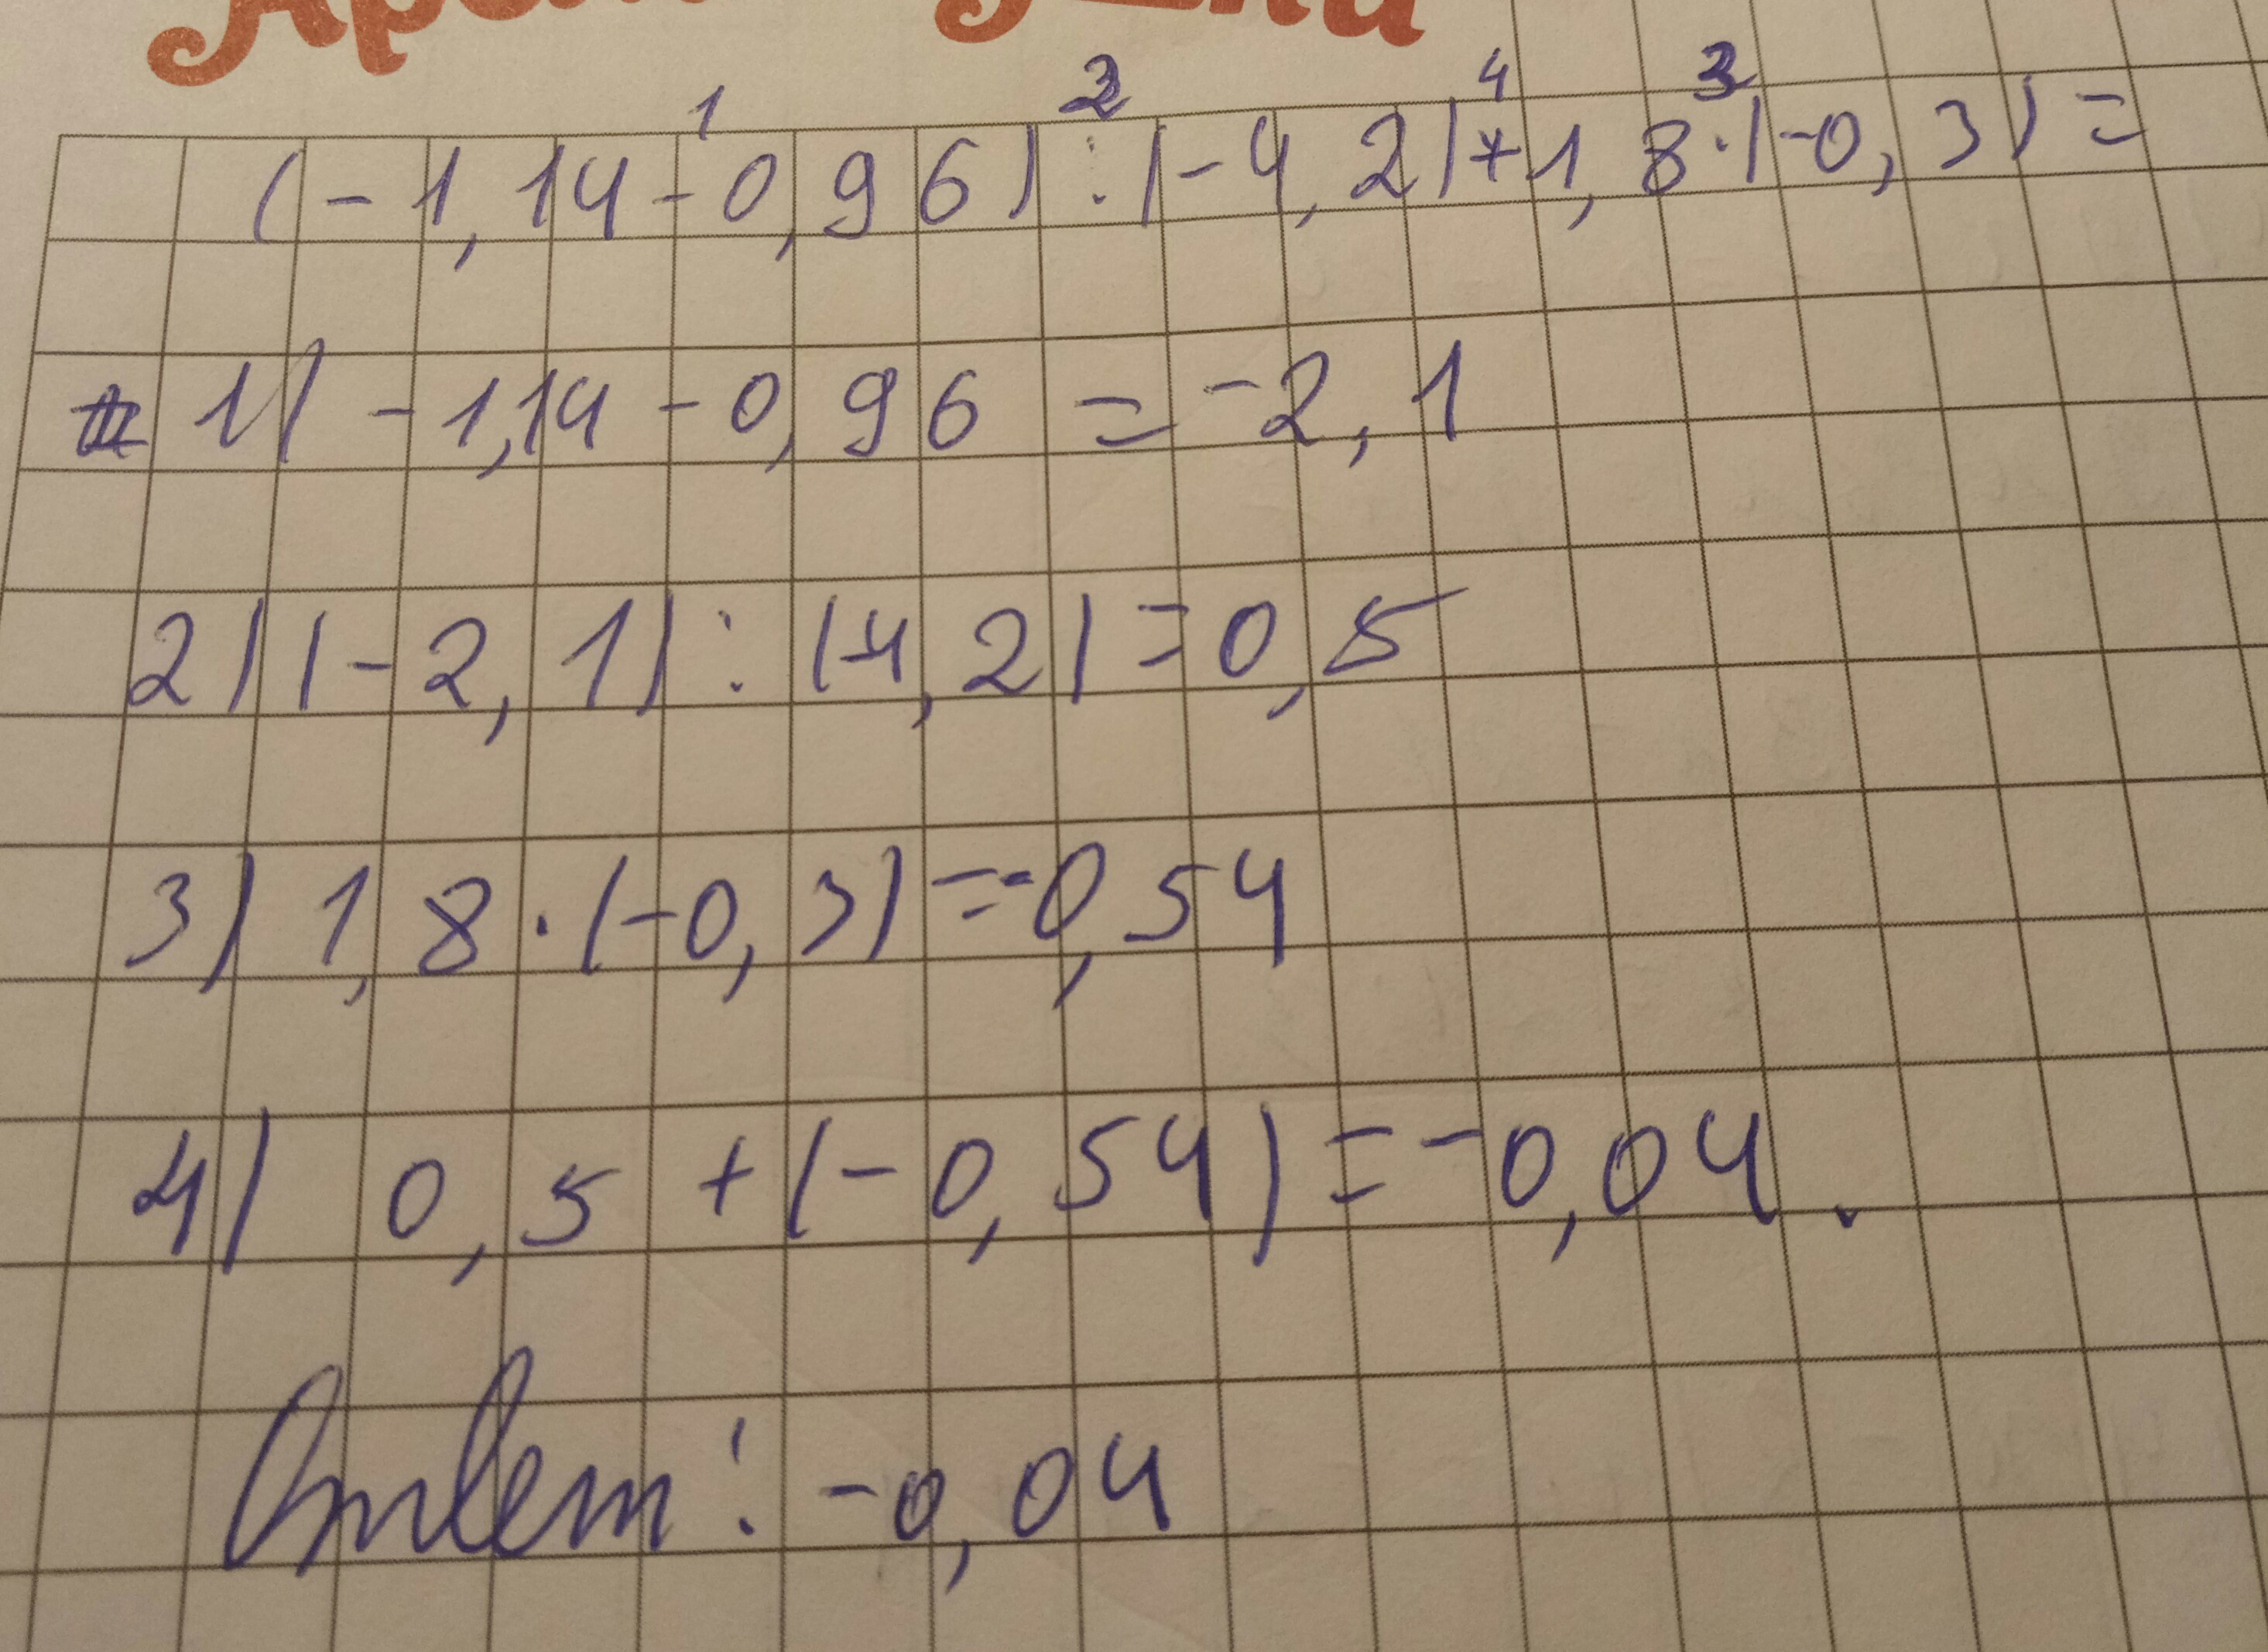 1 2 4 3
(-1,14-0,96):(-4,2)+1,8·(-0,3)=
1) -1,14-0,96=-2,1
2) (-2,1):(-4,2)=0,5
3) 1,8·(-0,3)=-0,54
4) 0,5+(-0,54)=-0,04.
Ответ: -0,04